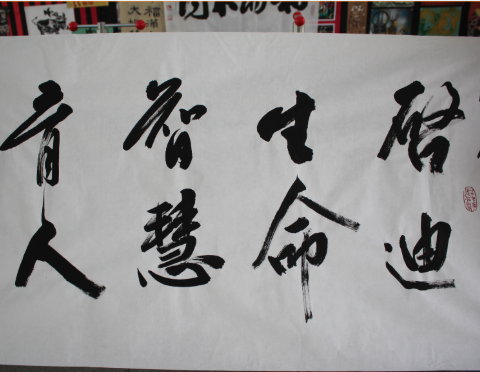 啓迪
生命
智慧
育人